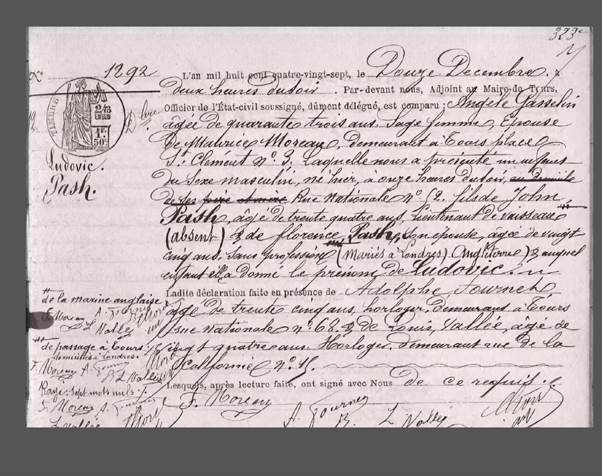 323e
No 1292
L'an mil huit cent quatre-vingt-sept, le Douze Decembre à
deux heures du soir. Par-devant nous, Adjoint au Maire de Tours,
Officier de l'État-civil soussigné, dûment délégué, est comparu: Angèle Gasselin
âgée de quarante trois ans Sage femme, Epouse
de Maurice Moreau, demeurant à Tours place
St Clement no 3, laquelle nous a présenté un enfant
du sexe masculin, né hier, à onze heures du soir,
Rue Nationale no 62. fils de John
Pash, âgé de trente quatre ans, lieutenant de vaisseau
(absent) & de florence Pash, son épouse, agée de vingt
cinq ans, sans profession (Mariés à Londres) (Angleterre) & auquel
enfant elle a donné le prénom de Ludovic.
Ladite déclaration faite en présence de Adolphe Fournet
âgé de trente cinq ans, horloger, demeurant à Tours
rue nationale no 68. & de Louis Vallée, âgé de
vingt quatre ans Horloger, demeurant rue de la
Californie no 15.
Lesquels, après lecture faite, ont signé avec Nous de ce requis.
F. Moreau
A. Fournet
L Vallée
Ludovic
Pash
de la marine anglaise
de passage à Tours
domiciliés à Londres
F. Moreau A. Fournet
L Vallée
Rayé sept mots nuls
F. Moreau